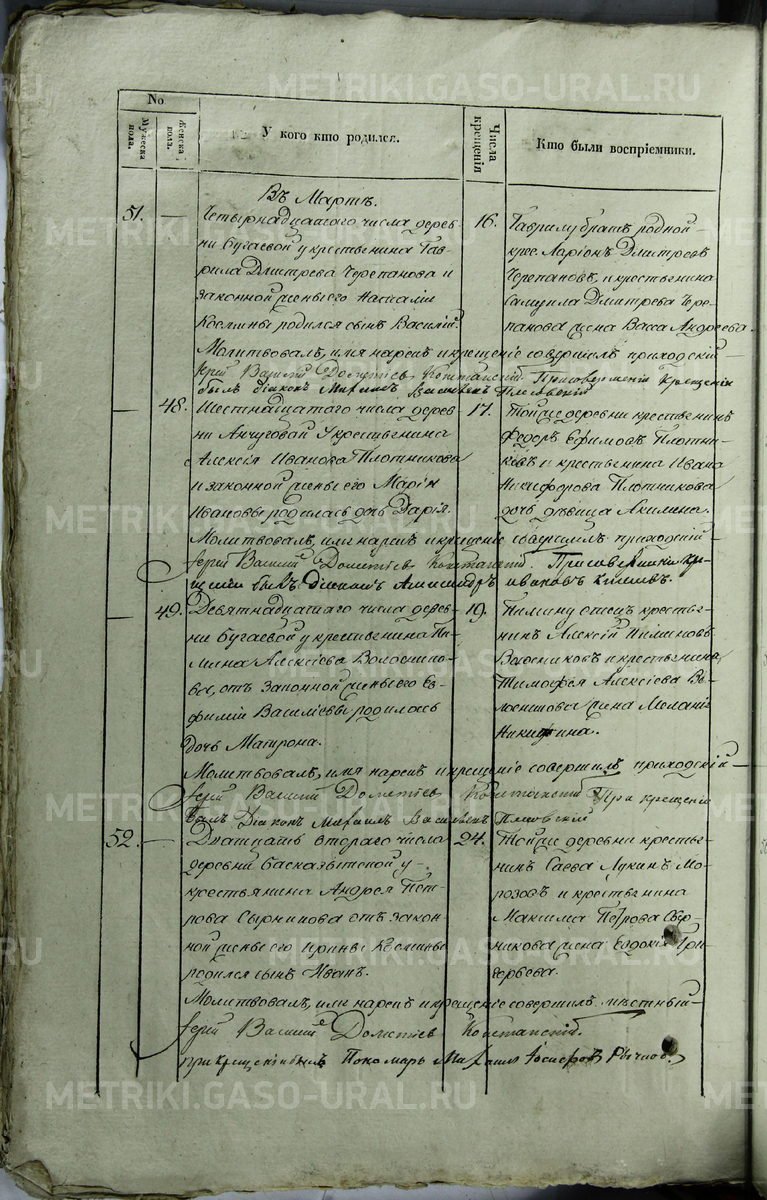 METRIKI.GASO-URAL.RU
No
Мужеска пола.
Женска пола.
У кого кто родился.
Числа крещенiя
Кто были воспрiемники.
Въ Мартѣ.
51.
Четырнадцатаго числа дерев-
ни Бугаевой у крестьянина Гав-
рила Дмитрева Черепанова и
законной жены его Наталiи
Косьмины родился сынъ Василiй.
16.
Гаврилу братъ родной
крес. Ларiонъ Дмитревъ
Черепановъ, и крестьянина
Самуила Дмитрева Чере-
панова жена Васса Андреева.
Молитвовалъ, имя нарекъ и крещенiе совершилъ приходскiй
Iерей Василiй Дометiевъ Конташскiй
былъ дiаконъ Михаилъ Васильевъ
48.
Шестнадцатаго числа дерев-
ни Анчуговой у крестьянина
Алексiя Иванова Плотникова
и законной жены его Марiи
Ивановы родилась дочь Дарiя.
17.
Тойже деревни крестьянинъ
Федоръ Ефимовъ Плотни-
ковъ и крестьянина Ивана
Никифорова Плотникова
дочь дѣвица Акилина.
Молитвовалъ, имя нарекъ и крещенiе совершилъ приходскiй
Iерей Василiй Дометiевъ
былъ Дiаконъ Александръ Ивановъ
49.
Девятнадцатаго числа дерев-
ни Бугаевой у крестьянина Пи-
мина Алексiева
ва, отъ законной жены его Ев-
фимiи Василiевы родилась
дочь Матрона.
19.
Пимину отецъ крестья-
нинъ Алексiй Пиминовъ
и крестьянина
Тимофея Алексiева
жена Меланiя
Никитина.
Молитвовалъ, имя нарекъ и крещенiе совершилъ приходскiй
Iерей Василiй Дометiевъ При крещенiи
былъ Дiаконъ Михаилъ Васильевъ
52.
Двадцать втораго числа
деревни у
крестьянина Андрея Пет-
рова Сырникова отъ закон-
ной жены его Ирины Космины
родился сынъ Иванъ.
24.
Тойже деревни крестья-
нинъ Савва Лукинъ Мо-
розовъ и крестьянина
Максима Петрова Сыр-
никова жена Евдокiя Гри-
горьева.
Молитвовалъ, имя нарекъ и крещенiе совершилъ мѣстный
Iерей Василiй Дометiевъ
при крещенiи былъ Пономарь Михаилъ
METRIKI.GASO-URAL.RU